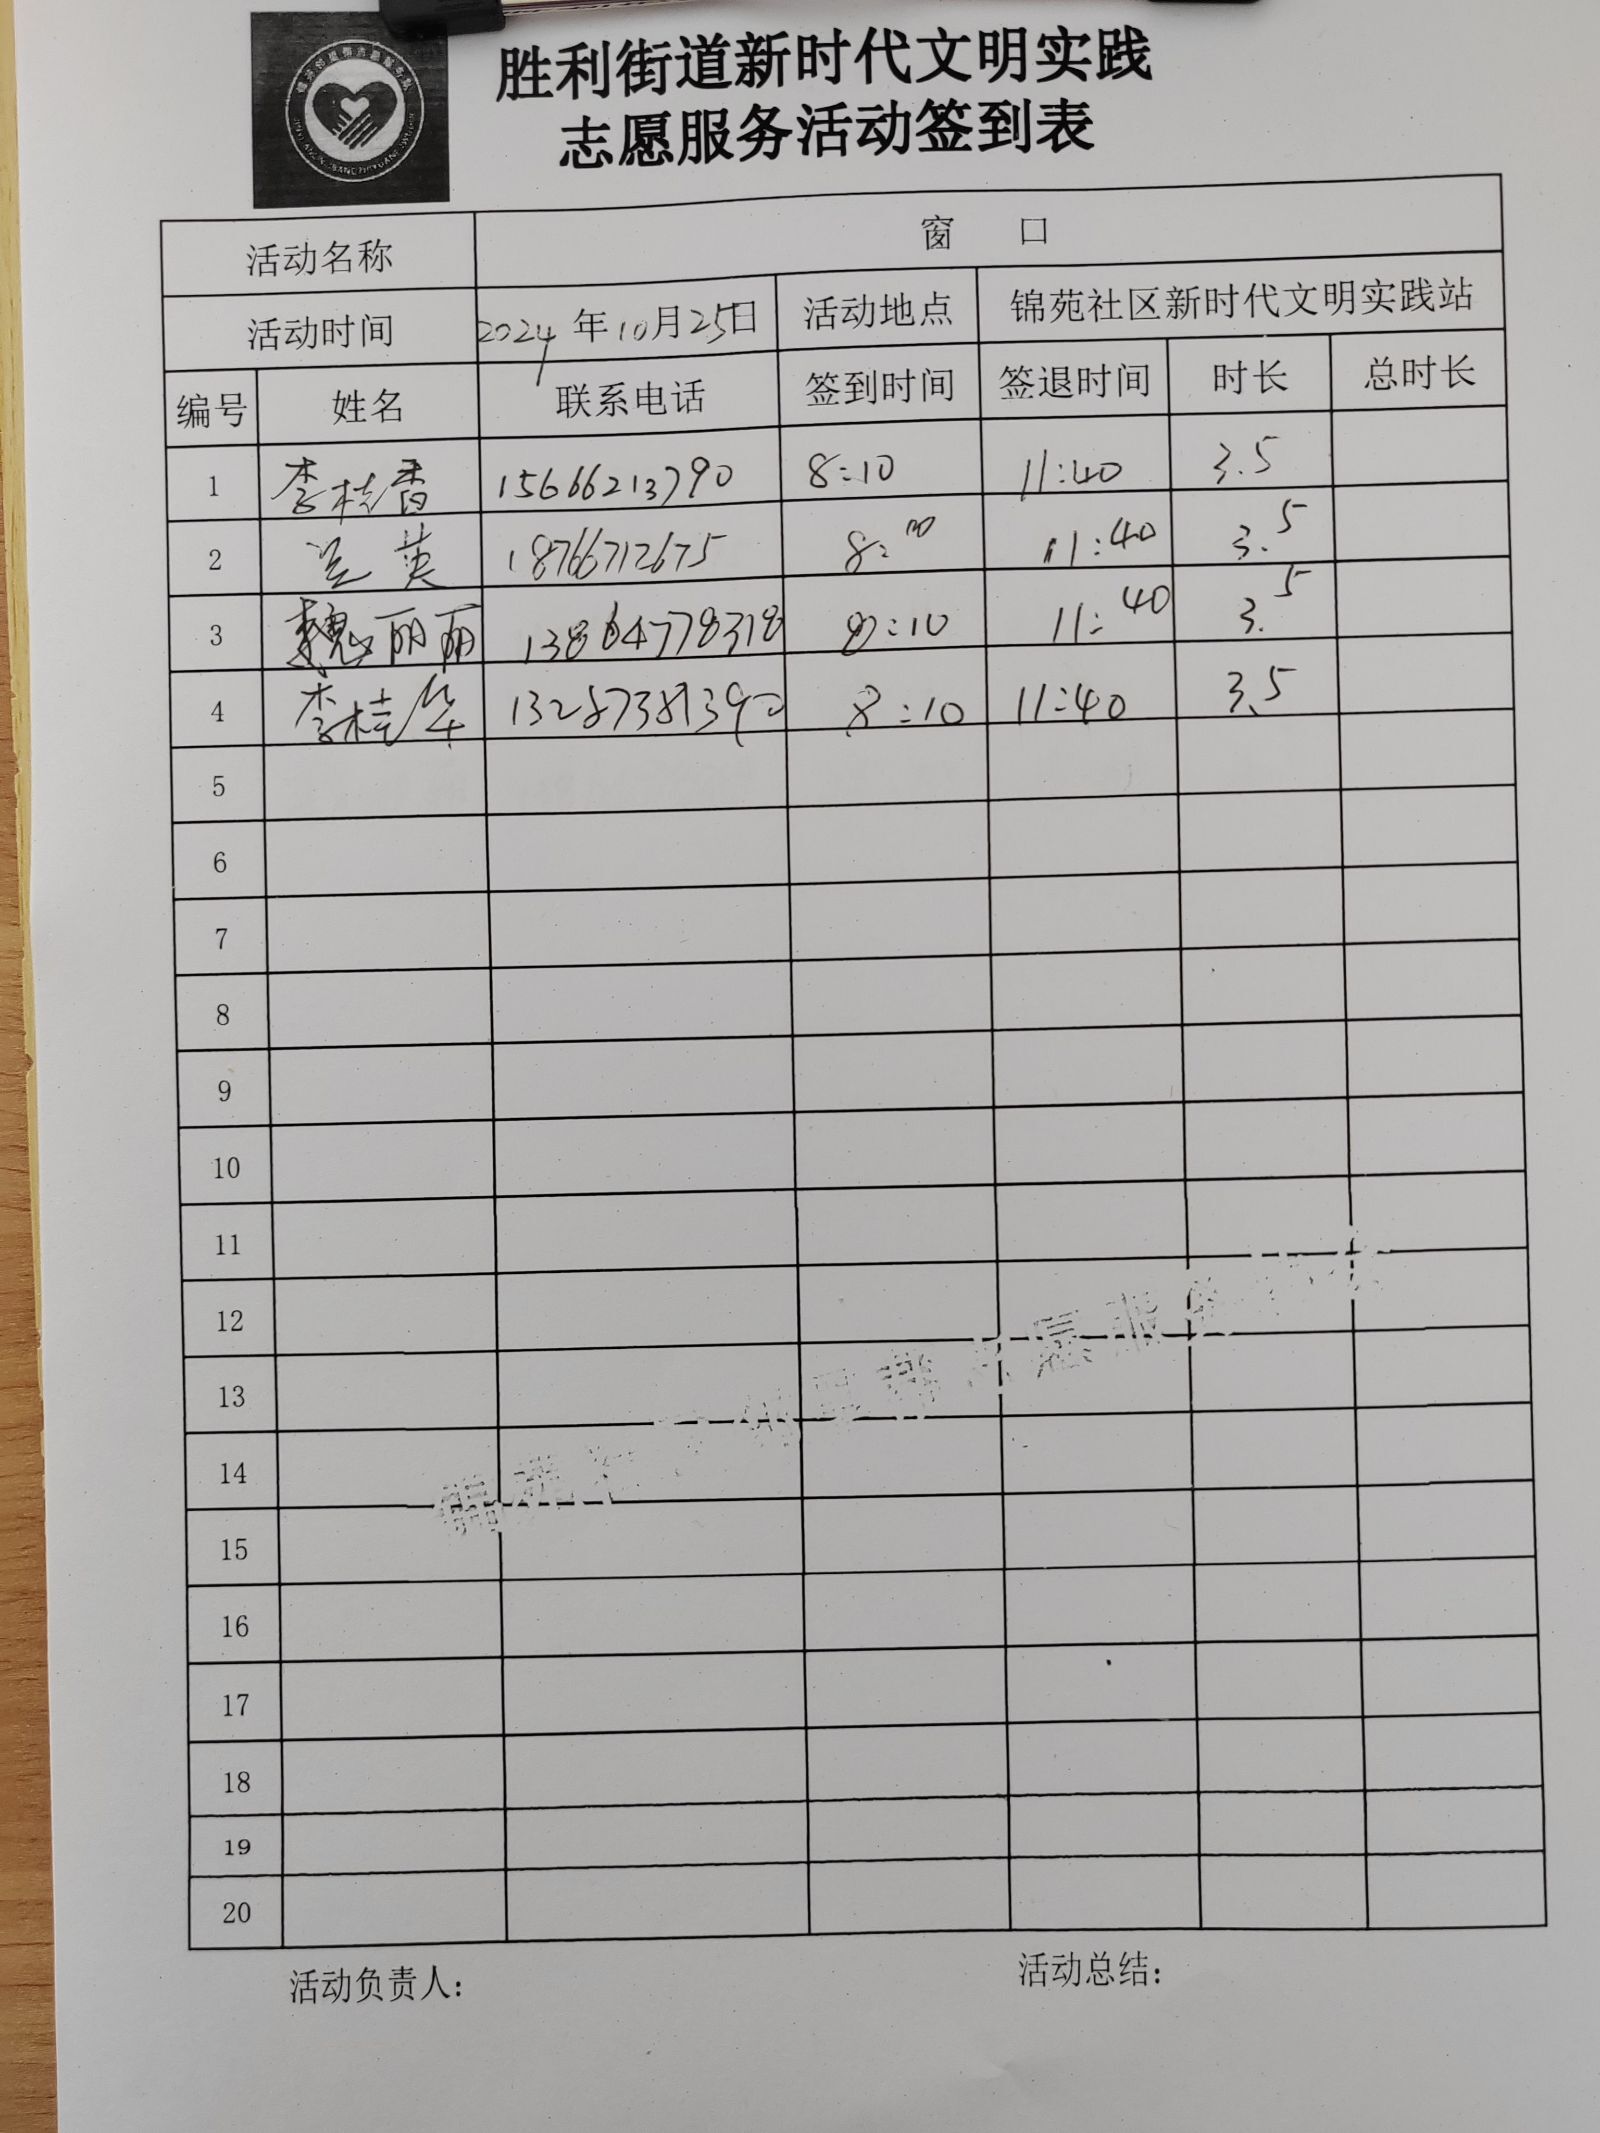 胜利街道新时代文明实践
志愿服务活动签到表
活动名称 窗 口
活动时间 2024年10月25日 活动地点 锦苑社区新时代文明实践站
编号 姓名 联系电话 签到时间 签退时间 时长 总时长
1 李桂香 15666213790 8:10 11:40 3.5
2 兰英 18766712675 8:10 11:40 3.5
3 魏丽丽 13864778318 8:10 11:40 3.5
4 李桂华 8:10 11:40 3.5
5
6
7
8
9
10
11
12
13
14
15
16
17
18
19
20
活动负责人: 活动总结: